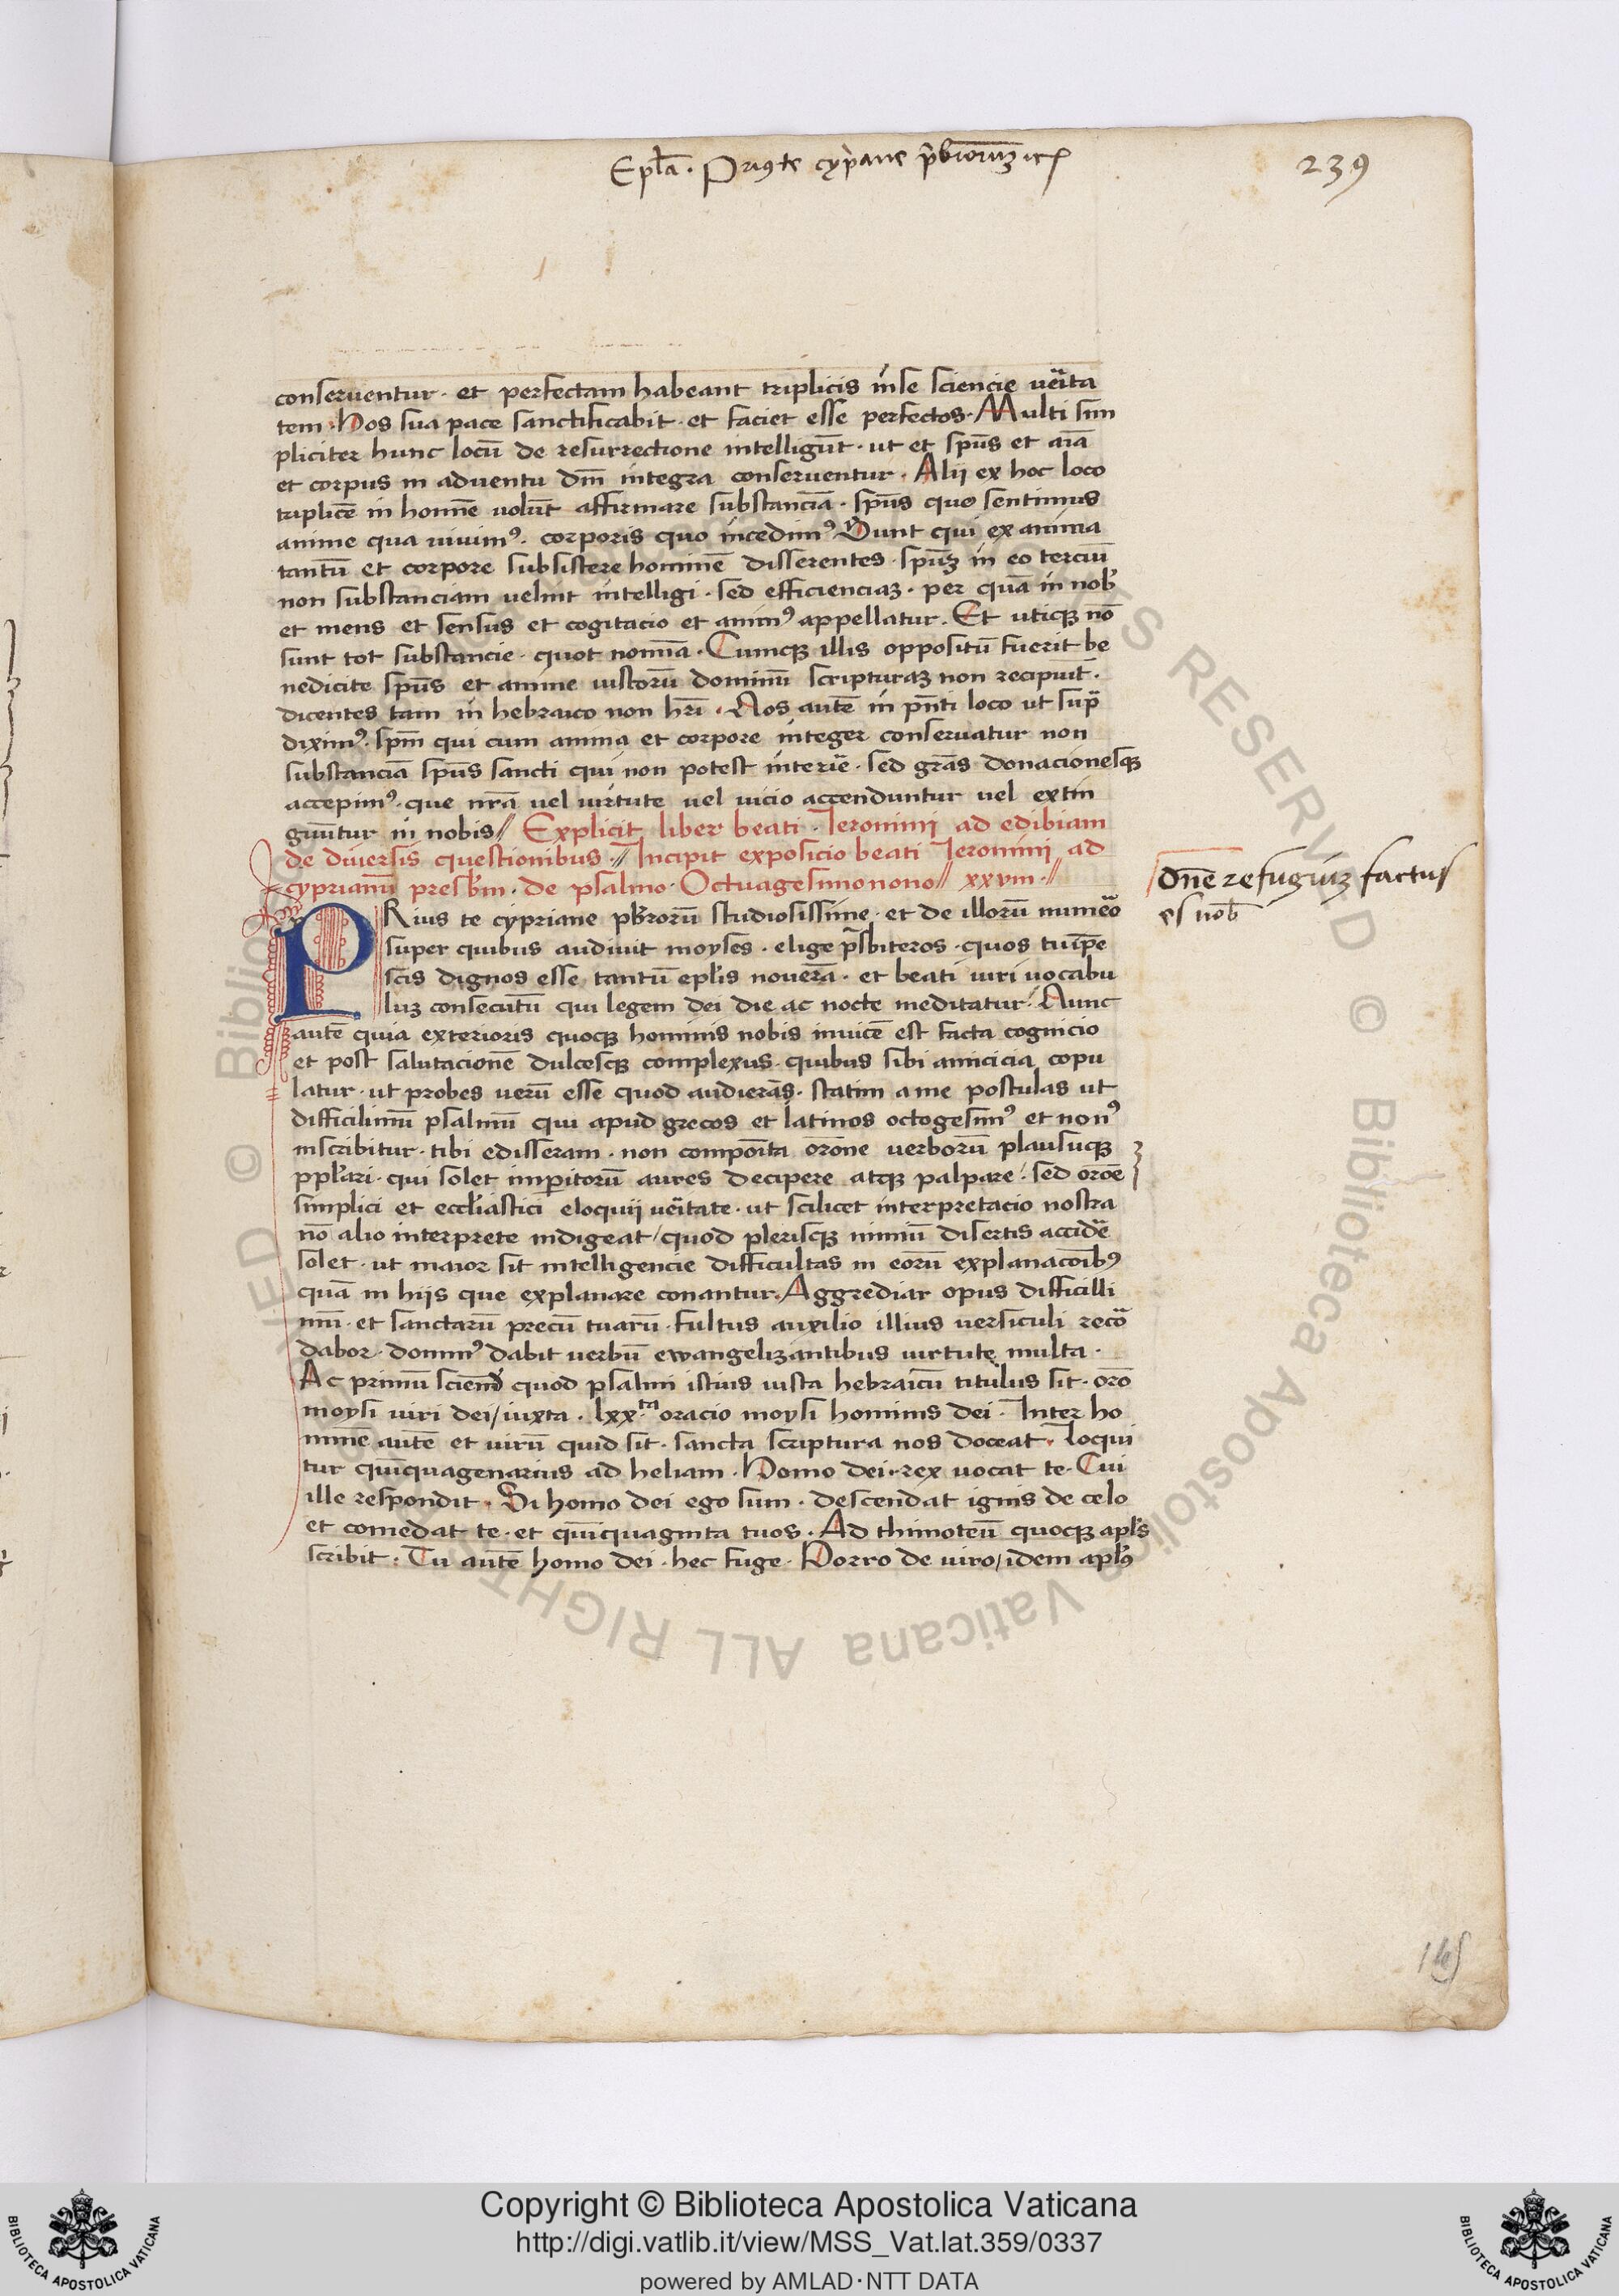 Epl̄a . Priꝰ te cypriane p̄biterorūꝫ ⁊cꝭ
239
conseruentur · et perfectam habeant triplicis in se sciencie ueīta
tem · Hos sua pace sanctificabit · et faciet esse perfectos · Multi sim
pliciter hunc locū de resurrectione intelligūt · ut et sp̄us et aīa
et corpus in aduentu dīn integra conseruentur · Alii ex hoc loco
triplicē in homīe volūt affirmare substanciā · sp̄us quo sentimus
anime qua uiuimꝰ · corporis quo incedimꝰ Sunt qui ex anima
tantū et corpore subsistere hominē disserentes · sp̄uꝫ in eo terciū
non substanciam uelint intelligi · sed efficienciaꝫ · per quā in nob̄
et mens et sensus et cogitacio et animꝰ appellatur · Et utiqꝫ nō
sunt tot substancie · quot nomīa · Cumqꝫ illis oppositū fuerit be
nedicite sp̄us et anime iustorū dominū scripturaꝫ non recipiūt ·
dicentes eam in hebraico non hr̄i · Nos autē in pn̄ti loco ut sup̄
diximꝰ · sp̄m qui cum anima et corpore integer conseruatur non
substanciā sp̄us sancti qui non potest interīe · sed grās donacionesqꝫ
accepimꝰ · que nr̄a uel uirtute uel uicio accenduntur uel extin
guūtur in nobis // Explicit liber beati · Ieronimi ad edibiam
de diuersis questionibus · // Incipit exposicio beati Ieronimi ad
cyprianū presb̄m · de psalmo · Octuagesimonono // xxviii · //
PRius te cypriane pb̄rorū studiosissime · et de illorū numēo
super quibus audiuit moyses · elige p̄sbiteros · quos tu ip̄e
scis dignos esse tantū epl̄is nouerā · et beati uiri uocabu
luꝫ consecutū qui legem dei die ac nocte meditatur · Nunc
autē quia exterioris quoqꝫ hominis nobis inuicē est facta cognicio
et post salutacionē dulcesqꝫ complexus · quibus sibi amicicia copu
latur · ut probes uerū esse quod audierās · statim a me postulas ut
difficilimū psalmū qui apud grecos et latinos octogesimꝰ et nonꝰ
inscribitur · tibi edisseram · non compoīta orōne uerborū plausuqꝫ
ppl̄ari · qui solet imperitorū aures decipere atqꝫ palpare · sed orōe
simplici et eccl̄iastici eloquii ueītate · ut scilicet interpretacio nostra
nō alio interprete indigeat / quod plerisqꝫ nimiū disertis accidē
solet · ut maior sit intelligencie difficultas in eorū explanacōibꝰ
quā in hiis que explanare conantur · Aggrediar opus difficilli
mū · et sanctarū precū tuarū · fultus auxilio illius uersiculi recō
dabor · dominꝰ dabit uerbū ewangelizantibus uirtute multa ·
Ac primū sciend̄ quod psalmi istius iusta hebraicū titulus sit · orō
moysi uiri dei / iuxta · lxx·ta oracio moysi hominis dei · Inter ho
minē autē et uirū quid sit · sancta scriptura nos doceat · Loqui
tur quīquagenarius ad heliam · Homo dei · rex uocat te · Cui
ille respondit · Si homo dei ego sum · descendat ignis de celo
et comedat te · et quīquaginta tuos · Ad thimoteū quoqꝫ apl̄s
scribit · Tu autē homo dei · hec fuge · Porro de uiro / idem apl̄s
Dn̄e refugiuꝫ factus
es nob̄
Copyright © Biblioteca Apostolica Vaticana
http://digi.vatlib.it/view/MSS_Vat.lat.359/0337
powered by AMLAD·NTT DATA
BIBLIOTECA APOSTOLICA VATICANA
BIBLIOTECA APOSTOLICA VATICANA